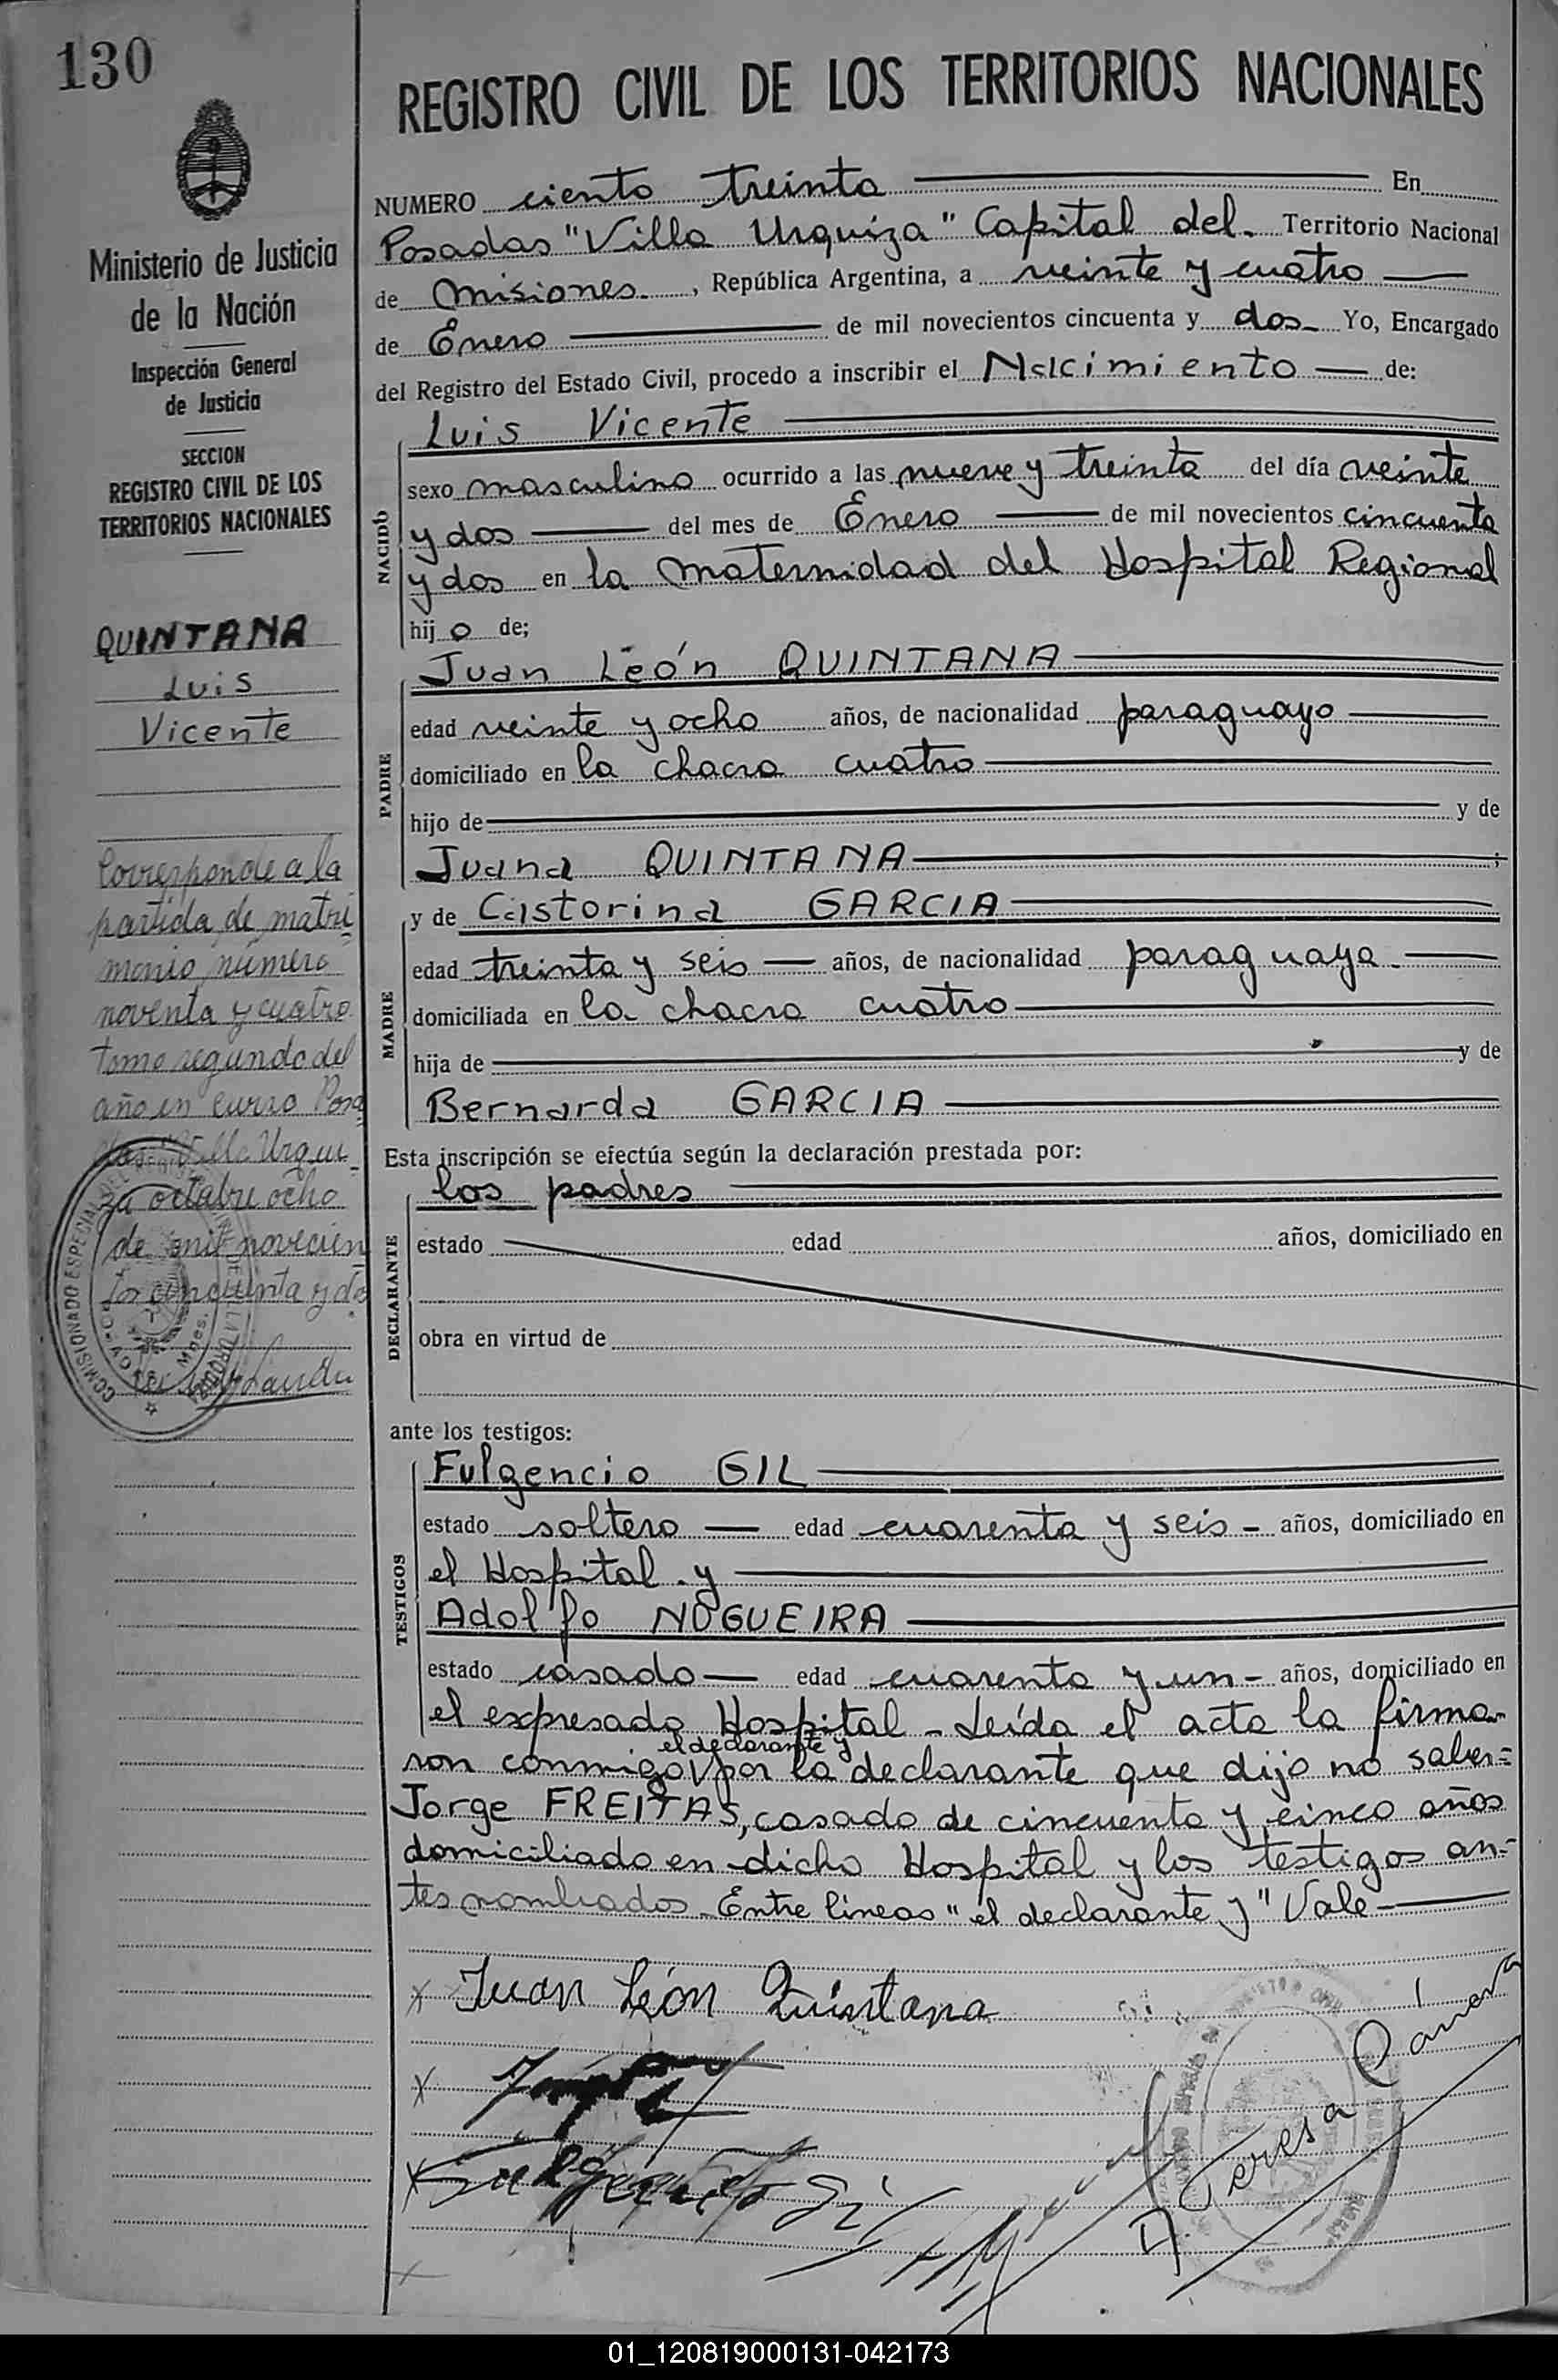 130
REGISTRO CIVIL DE LOS TERRITORIOS NACIONALES
Ministerio de Justicia
de la Nación
Inspección General
de Justicia
SECCION
REGISTRO CIVIL DE LOS
TERRITORIOS NACIONALES
QUINTANA
Luis
Vicente
Corresponde a la
partida de matri
monio número
noventa y cuatro
tomo segundo del
año en curso Posa
das "Villa Urqui
za octubre ocho
de mil novecien
tos cincuenta y dos
NUMERO ciento treinta En
Posadas "Villa Urquiza" Capital del Territorio Nacional
de Misiones, República Argentina, a veinte y cuatro
de Enero de mil novecientos cincuenta y dos Yo, Encargado
del Registro del Estado Civil, procedo a inscribir el Nacimiento de:
NACIDO
Luis Vicente
sexo masculino ocurrido a las nueve y treinta del día veinte
y dos del mes de Enero de mil novecientos cincuenta
y dos en la maternidad del Hospital Regional
hijo de;
PADRE
Juan León QUINTANA
edad veinte y ocho años, de nacionalidad paraguayo
domiciliado en la chacra cuatro
hijo de y de
Juana QUINTANA ;
MADRE
y de Castorina GARCIA
edad treinta y seis años, de nacionalidad paraguaya
domiciliada en la chacra cuatro
hija de y de
Bernarda GARCIA
Esta inscripción se efectúa según la declaración prestada por:
DECLARANTE
los padres
estado edad años, domiciliado en
obra en virtud de
ante los testigos:
TESTIGOS
Fulgencio GIL
estado soltero edad cuarenta y seis años, domiciliado en
el Hospital y
Adolfo NOGUEIRA
estado casado edad cuarenta y un años, domiciliado en
el expresado Hospital - Leída el acta la firma-
el declarante y
ron conmigo por la declarante que dijo no saber=
Jorge FREITAS, casado de cincuenta y cinco años
domiciliado en dicho Hospital y los testigos an=
tes nombrados. Entre lineas "el declarante y" Vale
x Juan León Quintana
x
x Fulgencio Gil
A. Teresa
x
01_120819000131-042173